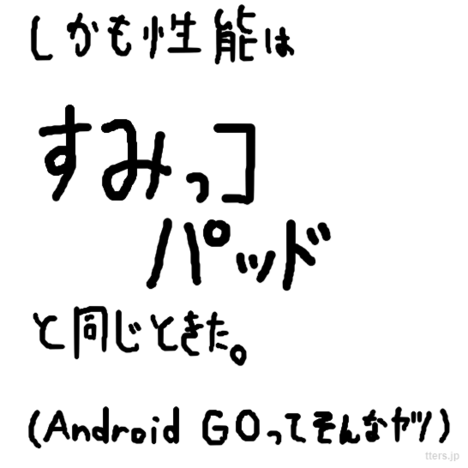 しかも性能は
すみっコ
パッド
と同じときた。
(Android GOってそんなヤツ)
tters.jp